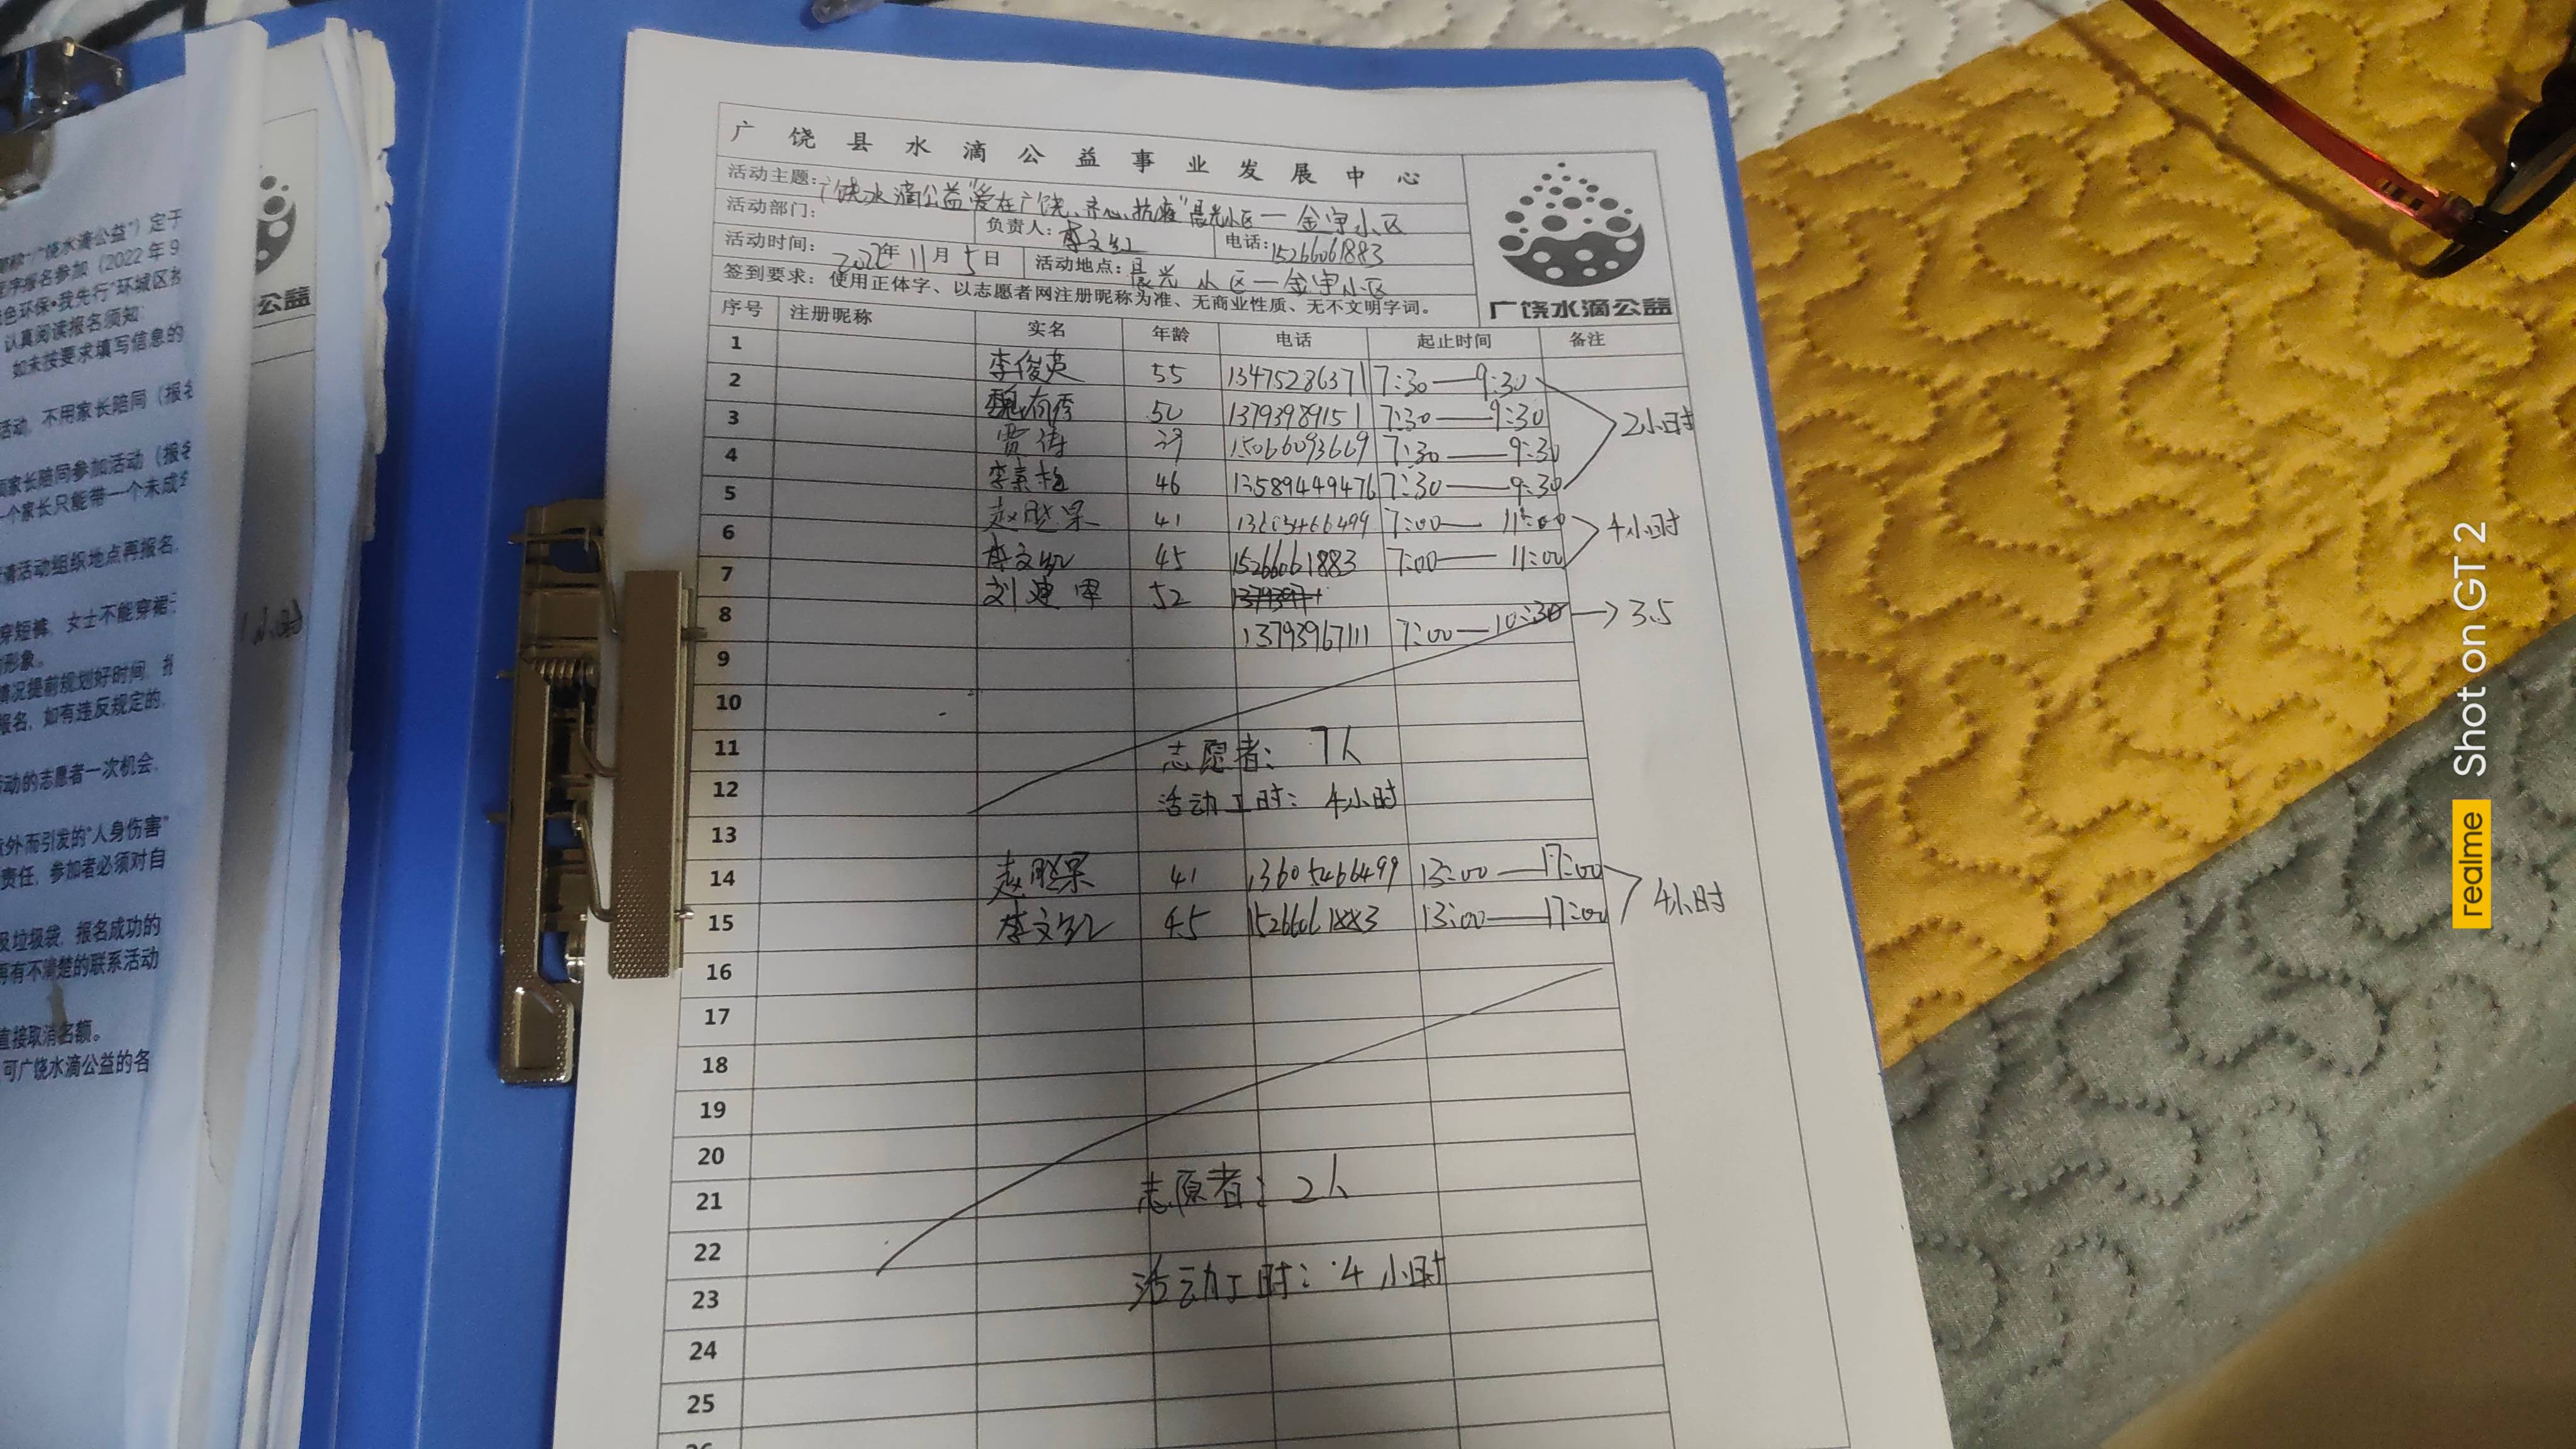 广饶县水滴公益事业发展中心
活动主题：广饶水滴公益"爱在广饶、齐心抗疫"晨光小区—金宇小区
活动部门： 负责人：李文红 电话：15266061883
活动时间：2022年11月5日 活动地点：晨光小区—金宇小区
签到要求：使用正体字、以志愿者网注册昵称为准、无商业性质、无不文明字词。
广饶水滴公益
序号 注册昵称 实名 年龄 电话 起止时间 备注
1 李俊英 55 13475286371 7:30—9:30
2 魏有秀 50 13793989151 7:30—9:30
2小时
3 贾涛 39 15066093669 7:30—9:30
4 李素梅 46 13589449476 7:30—9:30
5 赵聪果 41 13605466499 7:00—11:00
4小时
6 李文红 45 15266061883 7:00—11:00
7 刘建军 52
8 13793967111 7:00—10:30 →3.5
9
10
11 志愿者：7人
12 活动工时：4小时
13
14 赵聪果 41 13605466499 13:00—17:00
4小时
15 李文红 45 15266061883 13:00—17:00
16
17
18
19
20
21 志愿者：2人
22
23 活动工时：4小时
24
25
饶水滴公益"）定于
序报名参加（2022年9
色环保•我先行"环城区
认真阅读报名须知
如未按要求填写信息的
活动，不用家长陪同（报名
家长陪同参加活动（报名
一个家长只能带一个未成
请活动组织地点再报名，
穿短裤，女士不能穿裙
形象。
情况提前规划好时间，
报名，如有违反规定的，
动的志愿者一次机会，
意外而引发的"人身伤害"
责任，参加者必须对自
及垃圾袋，报名成功的
再有不清楚的联系活动
直接取消名额。
可广饶水滴公益的各
公益
1小时
realme Shot on GT 2